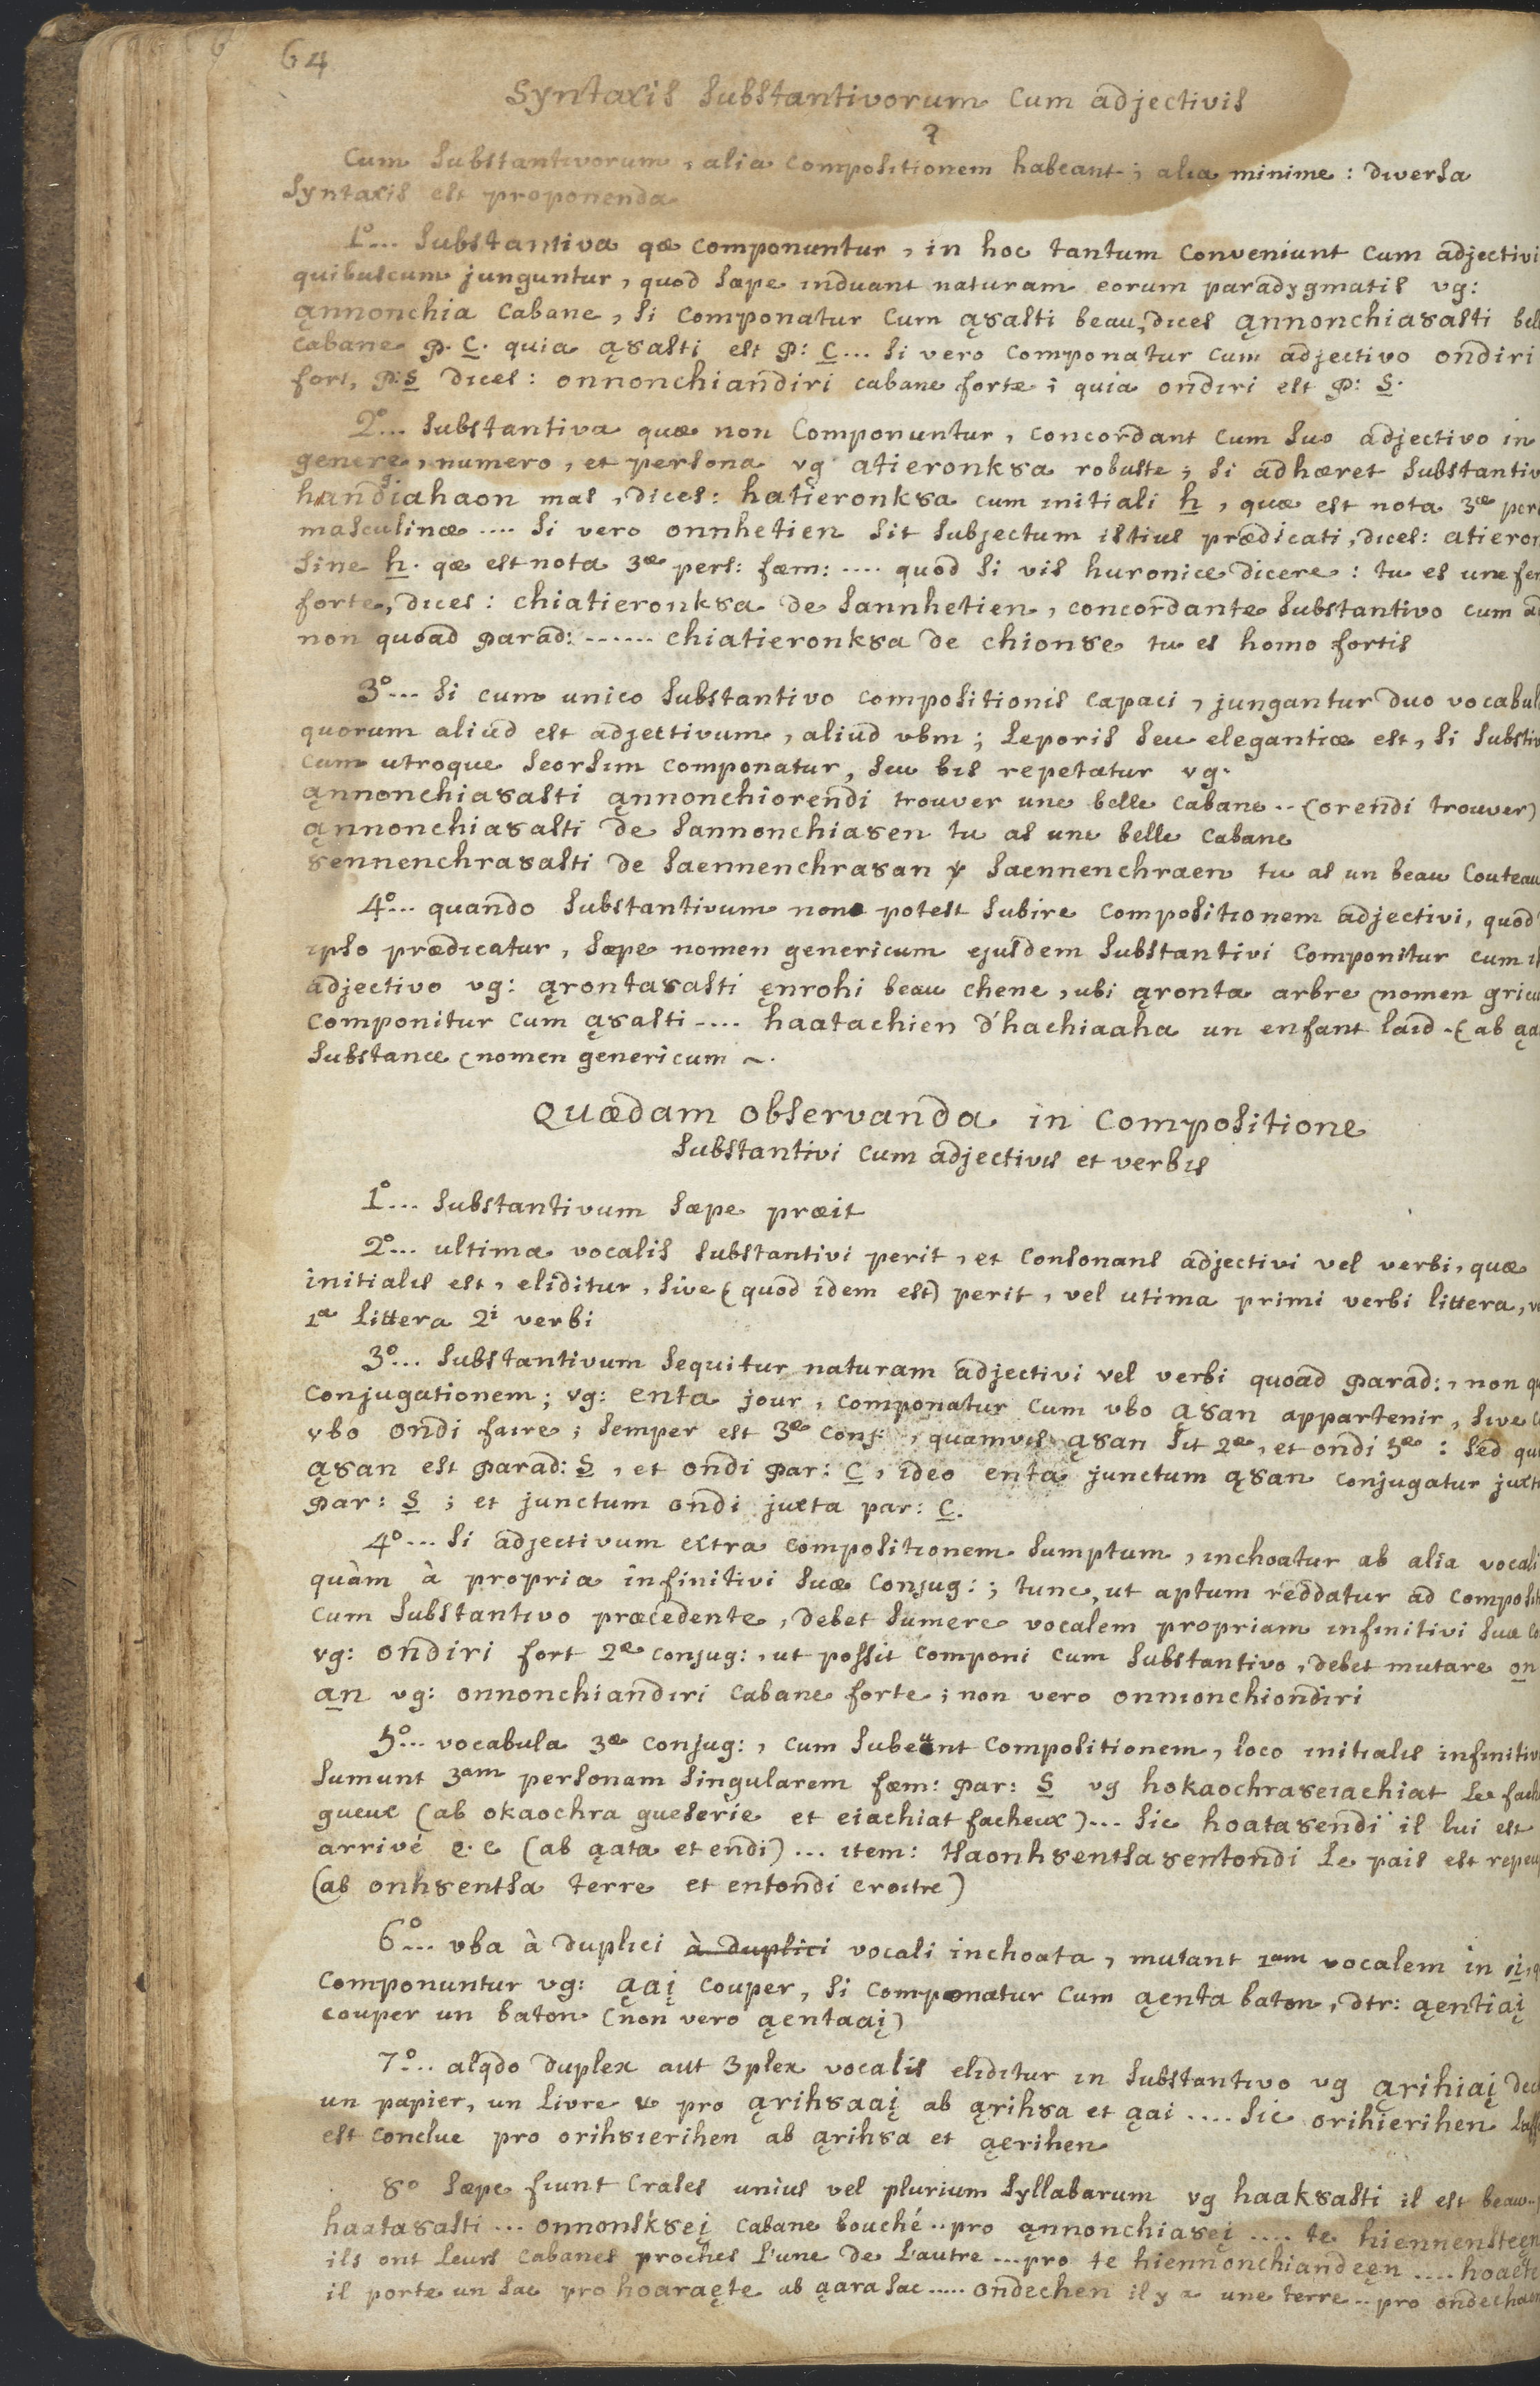 64
Syntaxis substantivorum cum adjectivis
Cum substantivorum, alia compositionem habeant; alia minime: diversa
syntaxis est proponenda
1º... substantiva qæ componuntur, in hoc tantum conveniunt cum adjectivi
quibuscum junguntur, quod sæpe induant naturam eorum paradygmatis vg:
ąnnonchia cabane, si componatur cum ąȣasti beau, dices ąnnonchiaȣasti bell
cabane p. C. quia ąȣasti est p: C... si vero componatur cum adjectivo ondiri
fort, p: S dices: onnonchiandiri cabane forte; quia ondiri est p: S.
2º... substantiva quæ non componuntur, concordant cum suo adjectivo in
genere, numero, et persona vg atieronkȣa robuste; si adhæret substantiv
handgiahaon mas, dices: hatieronkȣa cum initiali h, quæ est nota 3æ pers
masculinæ .... si vero onnhetien sit subjectum istius prædicati, dices: atieron
sine h. qæ est nota 3æ pers: fæm: .... quod si vis huronice dicere: tu es une fem
forte, dices: chiatieronkȣa de sannhetien, concordante substantivo cum ad
non quoad parad: ...... chiatieronkȣa de chionȣe tu es homo fortis
3º... si cum unico substantivo compositionis capaci, jungantur duo vocabul
quorum aliud est adjectivum, aliud vbm; leporis seu elegantiæ est, si substiv
cum utroque seorsim componatur, seu bis repetatur vg.
ąnnonchiaȣasti ąnnonchiorendi trouver une belle cabane .. (orendi trouver)
ąnnonchiaȣasti de sannonchiaȣen tu as une belle cabane
ȣennenchraȣasti de saennenchraȣan ꝟ saennenchraen tu as un beau couteau
4º... quando substantivum non potest subire compositionem adjectivi, quod
ipso prædicatur, sæpe nomen genericum ejusdem substantivi componitur cum il
adjectivo vg: ąrontaȣasti ęnrohi beau chene, ubi ąronta arbre (nomen gricu
componitur cum ąȣasti .... haatachien d'hachiaaha un enfant laid .. (ab ąa
substance (nomen genericum ~.
Quædam observanda in compositione
substantivi cum adjectivis et verbis
1º... substantivum sæpe præit
2º... ultima vocalis substantivi perit, et consonans adjectivi vel verbi, quæ
initialis est, eliditur, sive (quod idem est) perit, vel utima primi verbi littera, v
1a littera 2i verbi
3º... substantivum sequitur naturam adjectivi vel verbi quoad parad:, non q
conjugationem; vg: enta jour, componatur cum vbo ąȣan appartenir, sive c
vbo ondi faire; semper est 3æ conj:, quamvis ąȣan sit 2æ, et ondi 5æ: sed qui
ąȣan est parad: S, et ondi par: C, ideo enta junctum ąȣan conjugatur juxt
par: S; et junctum ondi juxta par: C.
4º... si adjectivum extra compositionem sumptum, inchoatur ab alia vocali
quàm à propria infinitivi suæ conjug:; tunc, ut aptum reddatur ad composit
cum substantivo præcedente, debet sumere vocalem propriam infinitivi suæ co
vg: ondiri fort 2æ conjug:, ut possit componi cum substantivo, debet mutare on
an vg: onnonchiandiri cabane forte; non vero onnonchiondiri
5º... vocabula 3æ conjug:, cum subeunt compositionem, loco initialis infinitiv
sumunt 3am personam singularem fæm: par: S vg hokaochraȣeiachiat le fach
gueux (ab okaochra gueserie et eiachiat facheux)... sic hoataȣendi il lui est
arrivé e. c (ab ąata et endi)... item: tsaonhȣentsaȣentondi le pais est repeu
(ab onhȣentsa terre et entondi croitre)
6º... vba à duplici à duplici vocali inchoata, mutant 1am vocalem in i,
componuntur vg: ąaį couper, si componatur cum ąenta baton, dtr: ąentiaį
couper un baton (non vero ąentaaį)
7º... alqdo duplex aut 3plex vocalis eliditur in substantivo vg ąrihiaį dec
un papier, un livre & pro ąrihȣaaį ab ąrihȣa et ąai .... sic orihierihen l'aff
est conclue pro orihȣierihen ab ąrihȣa et ąerihen
8º sæpe fiunt crases unius vel plurium syllabarum vg haakȣasti il est beau..
haataȣasti ... onnonskȣeį cabane bouché .. pro ąnnonchiaȣeį .... te hiennensteęn
ils ont leurs cabanes proches l'une de l'autre ... pro te hiennonchiandeęn .... hoaęte
il porte un sac pro hoaraęte ab ąara sac ..... ondechen il y a une terre .. pro ondechaen